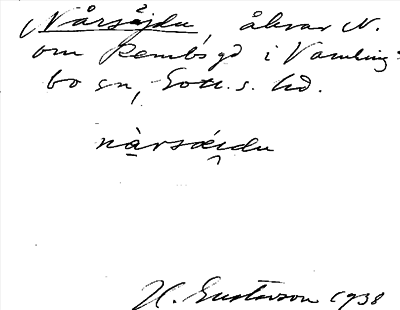 Nårsäjdu, åkrar N.
om Rembsgd i Vamling-
bo sn, Gotl. s. hd.
nàrsäi̯du
H. Gustavson 1938